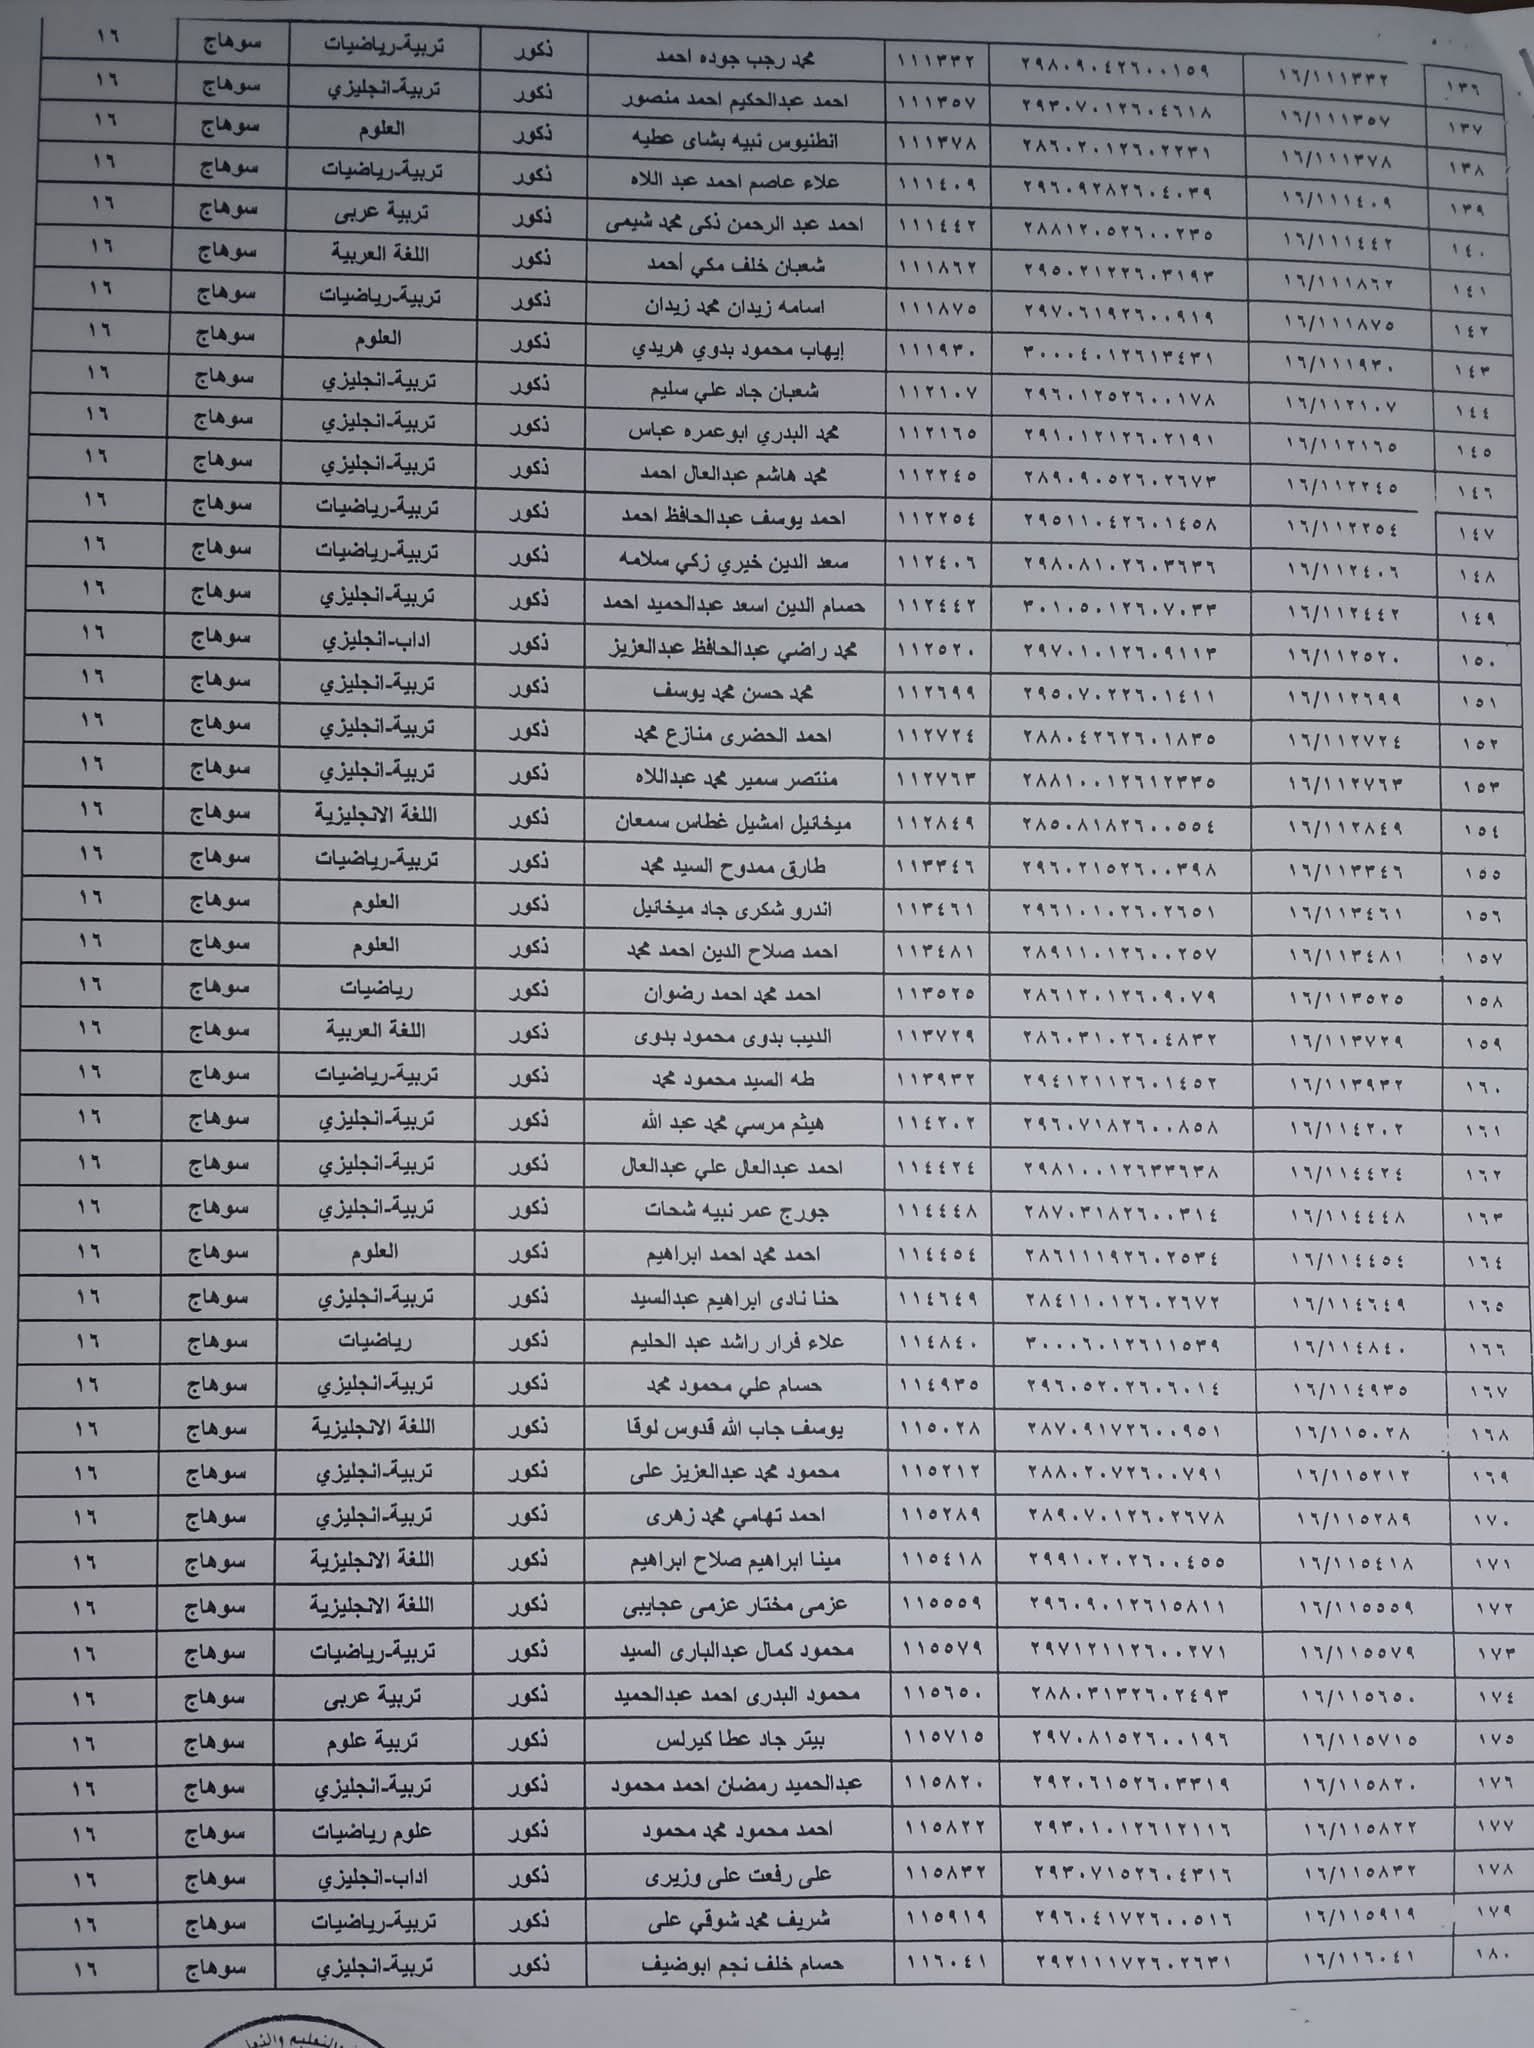 ١٣٦ ١٦/١١١٣٣٢ ٢٩٨٠٩٠٤٢٦٠٠١٥٩ ١١١٣٣٢ محمد رجب جوده احمد ذكور تربية-رياضيات سوهاج ١٦
١٣٧ ١٦/١١١٣٥٧ ٢٩٣٠٧٠١٢٦٠٤٦١٨ ١١١٣٥٧ احمد عبدالحكيم احمد منصور ذكور تربية-انجليزي سوهاج ١٦
١٣٨ ١٦/١١١٣٧٨ ٢٨٦٠٢٠١٢٦٠٢٢٣١ ١١١٣٧٨ انطنيوس نبيه بشاى عطيه ذكور العلوم سوهاج ١٦
١٣٩ ١٦/١١١٤٠٩ ٢٩٦٠٩٢٨٢٦٠٤٠٣٩ ١١١٤٠٩ علاء عاصم احمد عبد اللاه ذكور تربية-رياضيات سوهاج ١٦
١٤٠ ١٦/١١١٤٤٢ ٢٨٨١٢٠٥٢٦٠٠٢٣٥ ١١١٤٤٢ احمد عبد الرحمن ذكى محمد شيمى ذكور تربية عربى سوهاج ١٦
١٤١ ١٦/١١١٨٦٢ ٢٩٥٠٢١٢٢٦٠٣١٩٣ ١١١٨٦٢ شعبان خلف مكي أحمد ذكور اللغة العربية سوهاج ١٦
١٤٢ ١٦/١١١٨٧٥ ٢٩٧٠٦١٩٢٦٠٠٩١٩ ١١١٨٧٥ اسامه زيدان محمد زيدان ذكور تربية-رياضيات سوهاج ١٦
١٤٣ ١٦/١١١٩٣٠ ٣٠٠٠٤٠١٢٦١٣٤٣١ ١١١٩٣٠ إيهاب محمود بدوي هريدي ذكور العلوم سوهاج ١٦
١٤٤ ١٦/١١٢١٠٧ ٢٩٦٠١٢٥٢٦٠٠١٧٨ ١١٢١٠٧ شعبان جاد علي سليم ذكور تربية-انجليزي سوهاج ١٦
١٤٥ ١٦/١١٢١٦٥ ٢٩١٠١٢١٢٦٠٢١٩١ ١١٢١٦٥ محمد البدري ابوعمره عباس ذكور تربية-انجليزي سوهاج ١٦
١٤٦ ١٦/١١٢٢٤٥ ٢٨٩٠٩٠٥٢٦٠٢٦٧٣ ١١٢٢٤٥ محمد هاشم عبدالعال احمد ذكور تربية-انجليزي سوهاج ١٦
١٤٧ ١٦/١١٢٢٥٤ ٢٩٥١١٠٤٢٦٠١٤٥٨ ١١٢٢٥٤ احمد يوسف عبدالحافظ احمد ذكور تربية-رياضيات سوهاج ١٦
١٤٨ ١٦/١١٢٤٠٦ ٢٩٨٠٨١٠٢٦٠٣٦٣٦ ١١٢٤٠٦ سعد الدين خيري زكي سلامه ذكور تربية-رياضيات سوهاج ١٦
١٤٩ ١٦/١١٢٤٤٢ ٣٠١٠٥٠١٢٦٠٧٠٣٣ ١١٢٤٤٢ حسام الدين اسعد عبدالحميد احمد ذكور تربية-انجليزي سوهاج ١٦
١٥٠ ١٦/١١٢٥٢٠ ٢٩٧٠١٠١٢٦٠٩١١٣ ١١٢٥٢٠ محمد راضي عبدالحافظ عبدالعزيز ذكور اداب-انجليزي سوهاج ١٦
١٥١ ١٦/١١٢٦٩٩ ٢٩٥٠٧٠٢٢٦٠١٤١١ ١١٢٦٩٩ محمد حسن محمد يوسف ذكور تربية-انجليزي سوهاج ١٦
١٥٢ ١٦/١١٢٧٢٤ ٢٨٨٠٤٢٦٢٦٠١٨٣٥ ١١٢٧٢٤ احمد الحضرى منازع محمد ذكور تربية-انجليزي سوهاج ١٦
١٥٣ ١٦/١١٢٧٦٣ ٢٨٨١٠٠١٢٦١٢٣٣٥ ١١٢٧٦٣ منتصر سمير محمد عبداللاه ذكور تربية-انجليزي سوهاج ١٦
١٥٤ ١٦/١١٢٨٤٩ ٢٨٥٠٨١٨٢٦٠٠٥٥٤ ١١٢٨٤٩ ميخائيل امشيل غطاس سمعان ذكور اللغة الانجليزية سوهاج ١٦
١٥٥ ١٦/١١٣٣٤٦ ٢٩٦٠٢١٥٢٦٠٠٣٩٨ ١١٣٣٤٦ طارق ممدوح السيد محمد ذكور تربية-رياضيات سوهاج ١٦
١٥٦ ١٦/١١٣٤٦١ ٢٩٦١٠١٠٢٦٠٢٦٥١ ١١٣٤٦١ اندرو شكرى جاد ميخائيل ذكور العلوم سوهاج ١٦
١٥٧ ١٦/١١٣٤٨١ ٢٨٩١١٠١٢٦٠٠٢٥٧ ١١٣٤٨١ احمد صلاح الدين احمد محمد ذكور العلوم سوهاج ١٦
١٥٨ ١٦/١١٣٥٢٥ ٢٨٦١٢٠١٢٦٠٩٠٧٩ ١١٣٥٢٥ احمد محمد احمد رضوان ذكور رياضيات سوهاج ١٦
١٥٩ ١٦/١١٣٧٢٩ ٢٨٦٠٣١٠٢٦٠٤٨٣٢ ١١٣٧٢٩ الديب بدوى محمود بدوى ذكور اللغة العربية سوهاج ١٦
١٦٠ ١٦/١١٣٩٣٢ ٢٩٤١٢١١٢٦٠١٤٥٢ ١١٣٩٣٢ طه السيد محمود محمد ذكور تربية-رياضيات سوهاج ١٦
١٦١ ١٦/١١٤٢٠٢ ٢٩٦٠٧١٨٢٦٠٠٨٥٨ ١١٤٢٠٢ هيثم مرسي محمد عبد الله ذكور تربية-انجليزي سوهاج ١٦
١٦٢ ١٦/١١٤٤٢٤ ٢٩٨١٠٠١٢٦٣٣٦٣٨ ١١٤٤٢٤ احمد عبدالعال علي عبدالعال ذكور تربية-انجليزي سوهاج ١٦
١٦٣ ١٦/١١٤٤٤٨ ٢٨٧٠٣١٨٢٦٠٠٣١٤ ١١٤٤٤٨ جورج عمر نبيه شحات ذكور تربية-انجليزي سوهاج ١٦
١٦٤ ١٦/١١٤٤٥٤ ٢٨٦١١١٩٢٦٠٢٥٣٤ ١١٤٤٥٤ احمد محمد احمد ابراهيم ذكور العلوم سوهاج ١٦
١٦٥ ١٦/١١٤٦٤٩ ٢٨٤١١٠١٢٦٠٢٦٧٢ ١١٤٦٤٩ حنا نادى ابراهيم عبدالسيد ذكور تربية-انجليزي سوهاج ١٦
١٦٦ ١٦/١١٤٨٤٠ ٣٠٠٠٦٠١٢٦١١٥٣٩ ١١٤٨٤٠ علاء فرار راشد عبد الحليم ذكور رياضيات سوهاج ١٦
١٦٧ ١٦/١١٤٩٣٥ ٢٩٦٠٥٢٠٢٦٠٦٠١٤ ١١٤٩٣٥ حسام علي محمود محمد ذكور تربية-انجليزي سوهاج ١٦
١٦٨ ١٦/١١٥٠٢٨ ٢٨٧٠٩١٧٢٦٠٠٩٥١ ١١٥٠٢٨ يوسف جاب الله قدوس لوقا ذكور اللغة الانجليزية سوهاج ١٦
١٦٩ ١٦/١١٥٢١٢ ٢٨٨٠٢٠٧٢٦٠٠٧٩١ ١١٥٢١٢ محمود محمد عبدالعزيز على ذكور تربية-انجليزي سوهاج ١٦
١٧٠ ١٦/١١٥٢٨٩ ٢٨٩٠٧٠١٢٦٠٢٦٧٨ ١١٥٢٨٩ احمد تهامي محمد زهرى ذكور تربية-انجليزي سوهاج ١٦
١٧١ ١٦/١١٥٤١٨ ٢٩٩١٠٢٠٢٦٠٠٤٥٥ ١١٥٤١٨ مينا ابراهيم صلاح ابراهيم ذكور اللغة الانجليزية سوهاج ١٦
١٧٢ ١٦/١١٥٥٥٩ ٢٩٦٠٩٠١٢٦١٥٨١١ ١١٥٥٥٩ عزمى مختار عزمى عجايبى ذكور اللغة الانجليزية سوهاج ١٦
١٧٣ ١٦/١١٥٥٧٩ ٢٩٧١٢١١٢٦٠٠٢٧١ ١١٥٥٧٩ محمود كمال عبدالبارى السيد ذكور تربية-رياضيات سوهاج ١٦
١٧٤ ١٦/١١٥٦٥٠ ٢٨٨٠٣١٣٢٦٠٢٤٩٣ ١١٥٦٥٠ محمود البدرى احمد عبدالحميد ذكور تربية عربى سوهاج ١٦
١٧٥ ١٦/١١٥٧١٥ ٢٩٧٠٨١٥٢٦٠٠١٩٦ ١١٥٧١٥ بيتر جاد عطا كيرلس ذكور تربية علوم سوهاج ١٦
١٧٦ ١٦/١١٥٨٢٠ ٢٩٢٠٦١٥٢٦٠٣٣١٩ ١١٥٨٢٠ عبدالحميد رمضان احمد محمود ذكور تربية-انجليزي سوهاج ١٦
١٧٧ ١٦/١١٥٨٢٢ ٢٩٣٠١٠١٢٦١٢١١٦ ١١٥٨٢٢ احمد محمود محمد محمود ذكور علوم رياضيات سوهاج ١٦
١٧٨ ١٦/١١٥٨٣٢ ٢٩٣٠٧١٥٢٦٠٤٣١٦ ١١٥٨٣٢ على رفعت على وزيرى ذكور اداب-انجليزي سوهاج ١٦
١٧٩ ١٦/١١٥٩١٩ ٢٩٦٠٤١٧٢٦٠٠٥١٦ ١١٥٩١٩ شريف محمد شوقي على ذكور تربية-رياضيات سوهاج ١٦
١٨٠ ١٦/١١٦٠٤١ ٢٩٢١١١٧٢٦٠٢٦٣١ ١١٦٠٤١ حسام خلف نجم ابوضيف ذكور تربية-انجليزي سوهاج ١٦
والتعليم